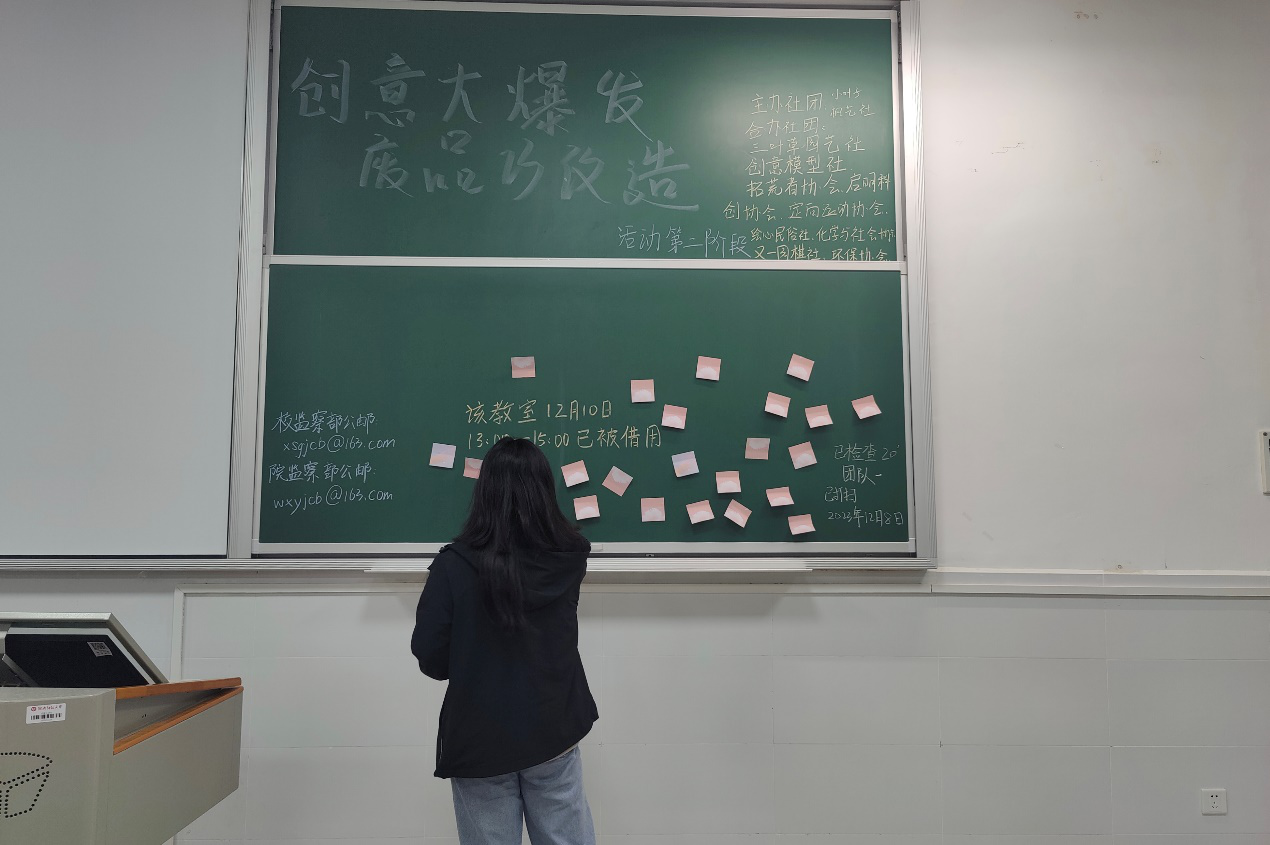 创意大爆发
废品巧改造
活动第二阶段
主办社团
合办社团:
三叶草园艺社
创意模型社
拓荒者协会、启明科
创协会、定向运动协会、
绘心民俗社、化学与社会协
又一围棋社、环保协会
校监察部公邮:
xsgjcb@163.com
院监察部公邮:
wxyjcb@163.com
该教室12月10日
13:00-15:00已被借用
已检查20'
团队一
已打扫
2023年12月8日